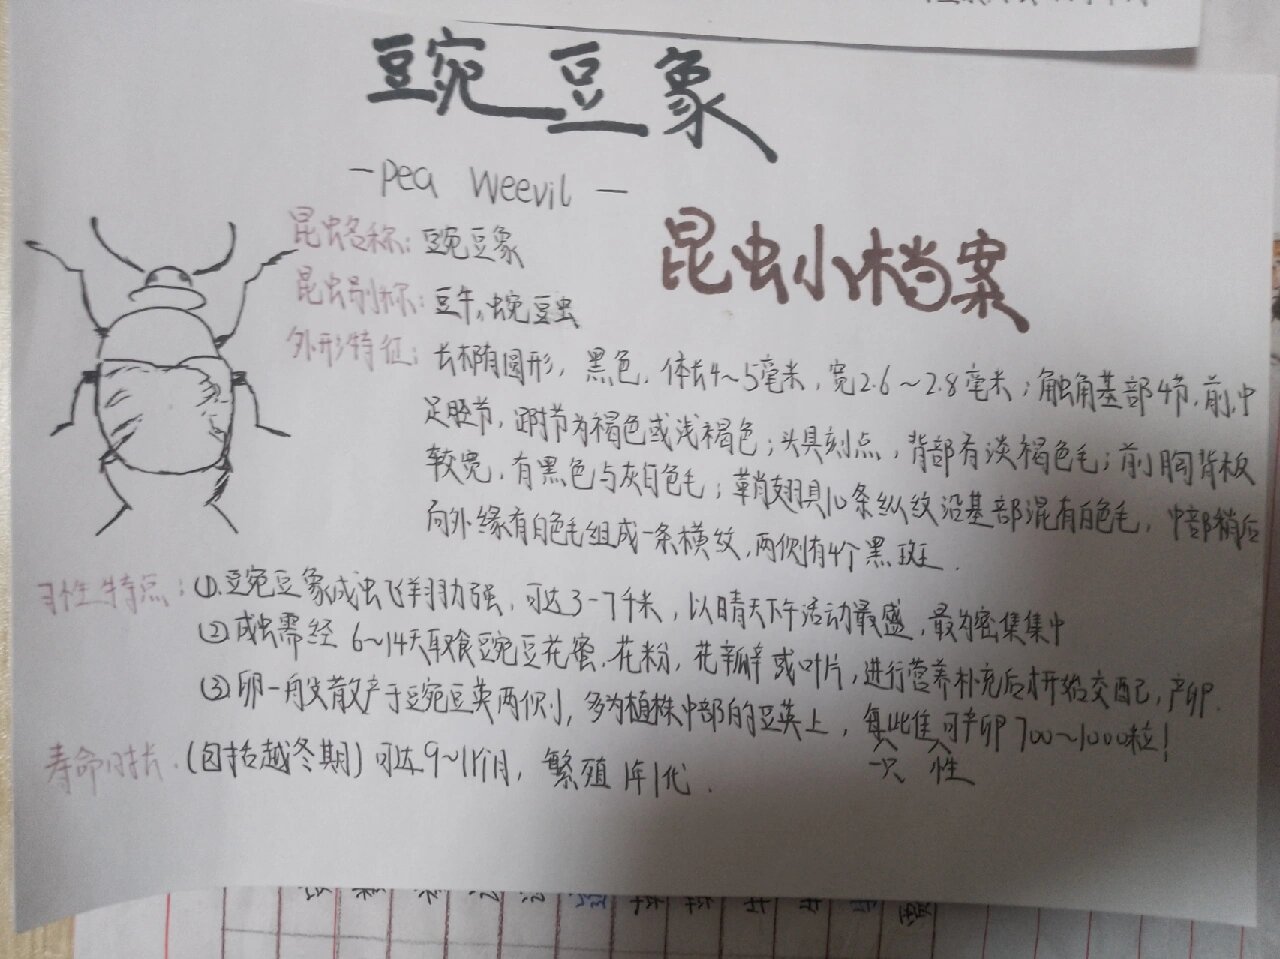 豌豆象
-Pea Weevil-
昆虫小档案
昆虫名称: 豌豆象
昆虫别称: 豆牛, 豌豆虫
外形特征: 长椭圆形, 黑色, 体长4~5毫米, 宽2.6~2.8毫米; 触角基部4节, 前,中
足胫节, 跗节为褐色或浅褐色; 头具刻点, 背部有淡褐色毛; 前胸背板
较宽, 有黑色与灰白色毛; 鞘翅具10条纵纹沿基部混有白色毛, 中部稍后
向外缘有白色毛组成一条横纹, 两侧有4个黑斑.
习性特点: ①.豌豆象成虫飞翔力强, 可达3-7千米, 以晴天下午活动最盛, 最为密集集中
②成虫需经6~14天取食豌豆花蜜、花粉, 花瓣或叶片, 进行营养补充后才开始交配, 产卵.
③卵一般散产于豌豆荚两侧, 多为植株中部的豆荚上, 每只雌性可产卵700~1000粒!
寿命时长. (包括越冬期) 可达9~11个月, 繁殖1年1代.